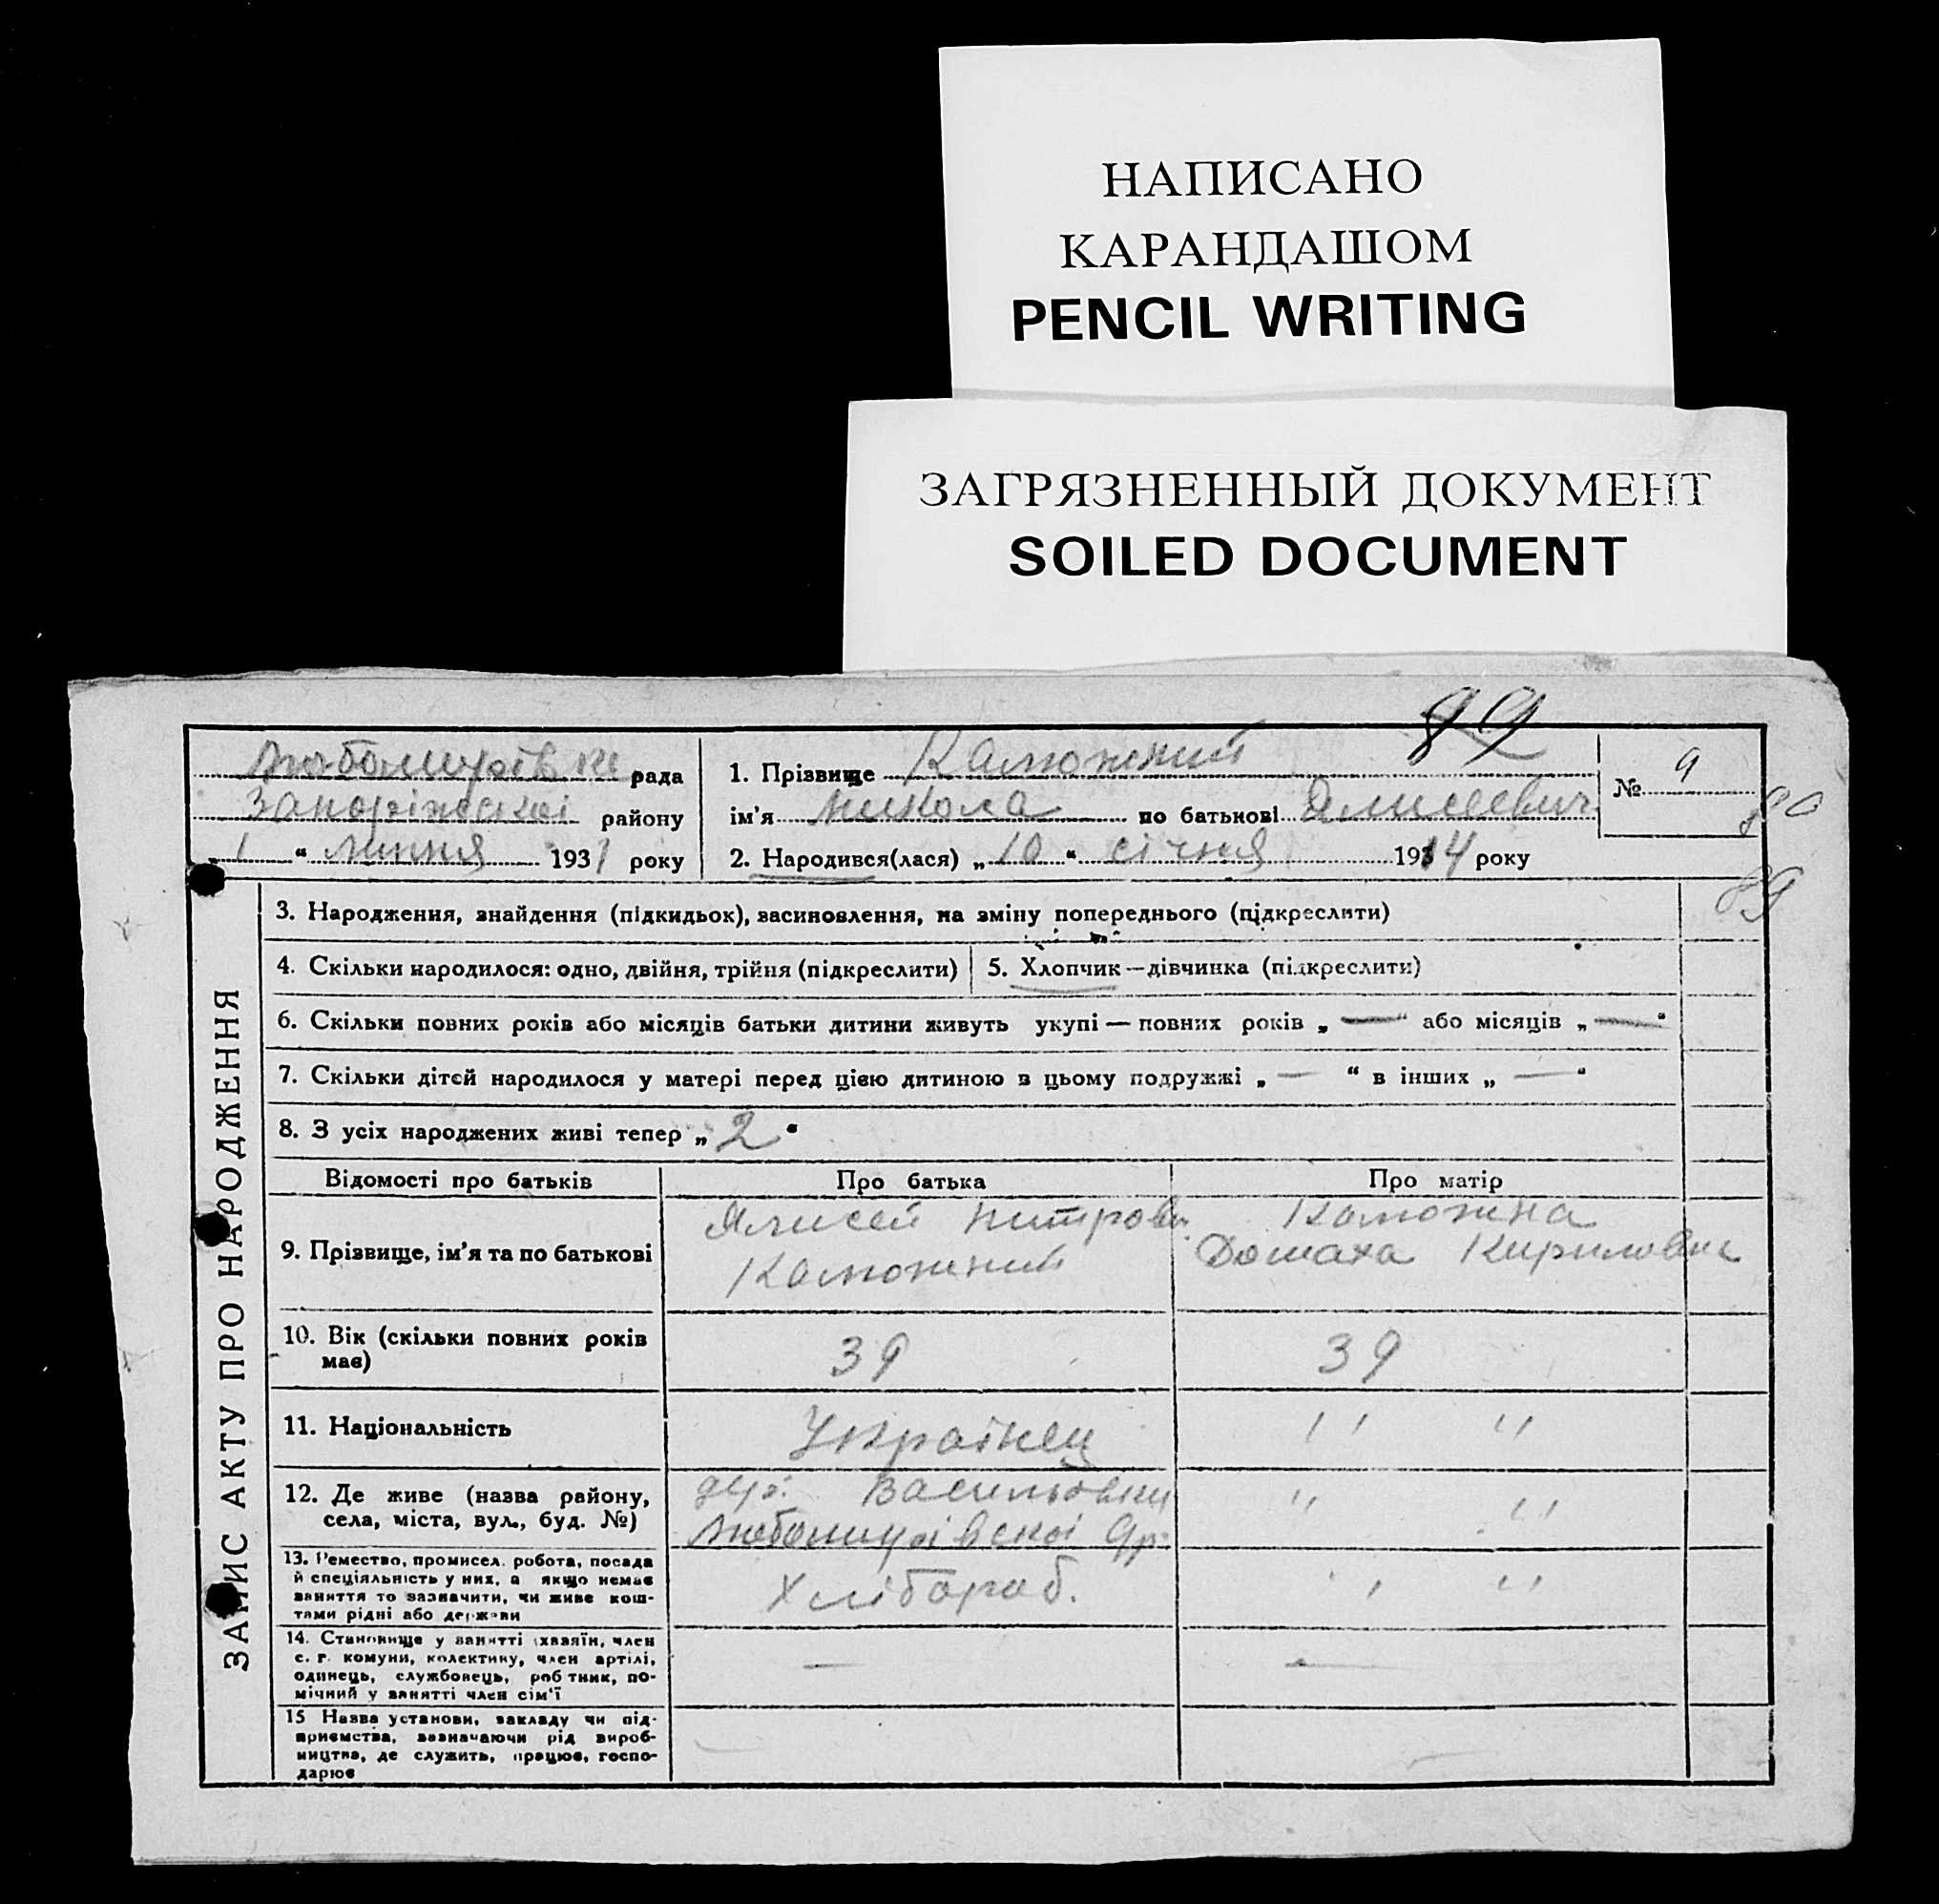 НАПИСАНО
КАРАНДАШОМ
PENCIL WRITING
ЗАГРЯЗНЕННЫЙ ДОКУМЕНТ
SOILED DOCUMENT
89
рада
Запоріжскої району
1 " липня 1931 року
1. Прізвище Калюжний
ім'я Микола по батькові Ялисеевич
2. Народився(лася) „ 10 " січня 1914 року
№ 9
80
89
ЗАПИС АКТУ ПРО НАРОДЖЕННЯ
3. Народження, знайдення (підкидьок), засиновлення, на зміну попереднього (підкреслити)
4. Скільки народилося: одно, двійня, трійня (підкреслити)
5. Хлопчик—дівчинка (підкреслити)
6. Скільки повних років або місяців батьки дитини живуть укупі — повних років „ — " або місяців „ — "
7. Скільки дітей народилося у матері перед цією дитиною в цьому подружжі „ — " в інших „ — "
8. З усіх народжених живі тепер „ 2 "
Відомості про батьків Про батька Про матір
9. Прізвище, ім'я та по батькові
Ялисей
Калюжний
Калюжна
Домаха Кириловна
10. Вік (скільки повних років
має)
39 39
11. Національність Українец " "
12. Де живе (назва району,
села, міста, вул., буд. №)
Васильовки " "
13. Ремество, промисел. робота, посада
й спеціяльність у них, а якщо немає
заняття то зазначити, чи живе кош-
тами рідні або держави
Хлібороб. " "
14. Становище у занятті (хазяїн, член
с. г. комуни, колективу, член артілі,
одинець, службовець, робітник, по-
мічний у занятті член сім'ї
— —
15 Назва установи, закладу чи під-
приємства, зазначаючи рід вироб-
ництва, де служить, працює, госпо-
дарює